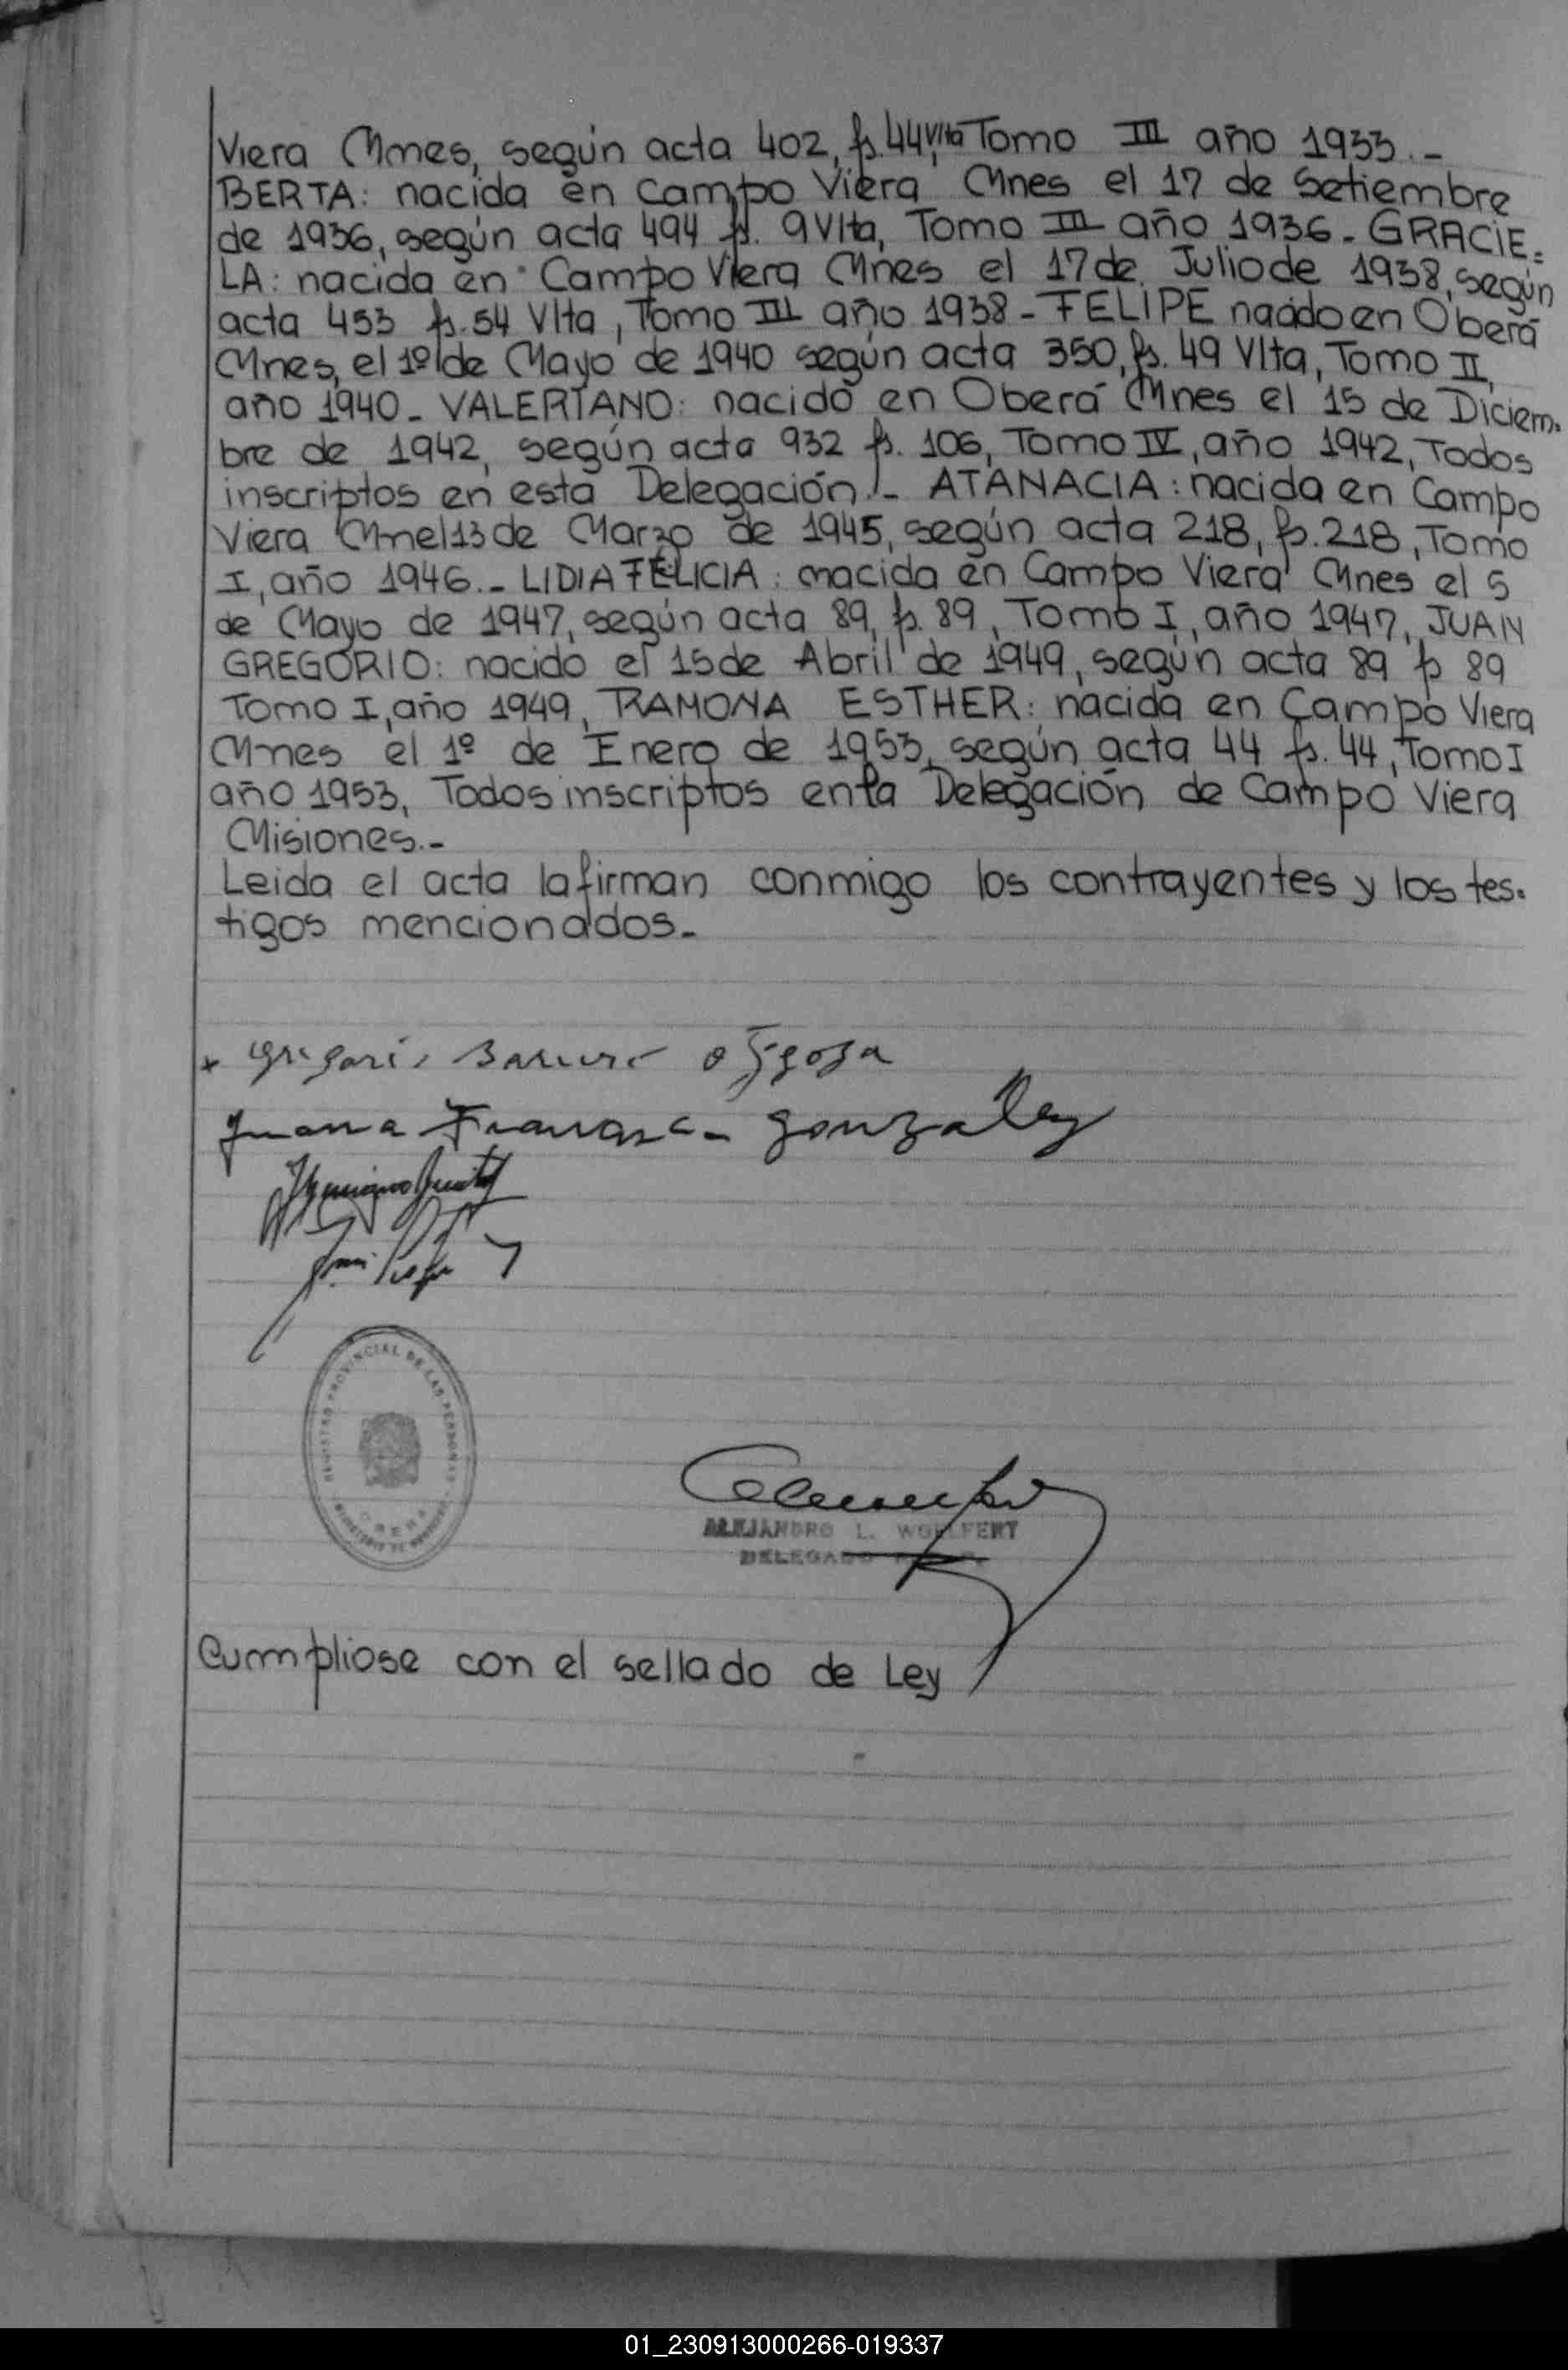 Viera Mnes, según acta 402, fs. 44, Vlta Tomo III año 1933.-
BERTA: nacida en Campo Viera Mnes el 17 de Setiembre
de 1936, según acta 494 fs. 9 Vlta, Tomo III año 1936.- GRACIE=
LA: nacida en Campo Viera Mnes el 17 de Julio de 1938, según
acta 453 fs. 54 Vlta, Tomo III año 1938 - FELIPE nacido en Oberá
Mnes, el 1º de Mayo de 1940 según acta 350, fs. 49 Vlta, Tomo II,
año 1940 - VALERIANO: nacido en Oberá Mnes el 15 de Diciem-
bre de 1942, según acta 932 fs. 106, Tomo IV, año 1942, Todos
inscriptos en esta Delegación.- ATANACIA: nacida en Campo
Viera Mnel 13 de Marzo de 1945, según acta 218, fs. 218, Tomo
I, año 1946.- LIDIA FELICIA: nacida en Campo Viera Mnes el 5
de Mayo de 1947, según acta 89, fs. 89, Tomo I, año 1947, JUAN
GREGORIO: nacido el 15 de Abril de 1949, según acta 89 fs 89
Tomo I, año 1949, RAMONA ESTHER: nacida en Campo Viera
Mnes el 1º de Enero de 1953, según acta 44 fs. 44, Tomo I
año 1953, Todos inscriptos en la Delegación de Campo Viera
Misiones.-
Leida el acta la firman conmigo los contrayentes y los tes-
tigos mencionados.-
Juana Francisca gonzalez
REGISTRO PROVINCIAL DE LAS PERSONAS
OBERA
ALEJANDRO L. WOELFERT
DELEGADO
Cumpliose con el sellado de Ley
01_230913000266-019337